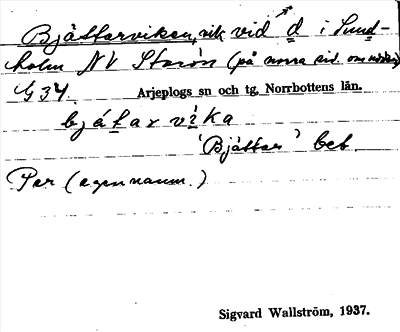 Bjättarviken, vik vid d i Sund-
holm NV Storön (på norra sid. om udden)
G 34. Arjeplogs sn och tg, Norrbottens län.
bjátar vìka
'Bjättar' bet.
Per (egennamn.)
Sigvard Wallström, 1937.